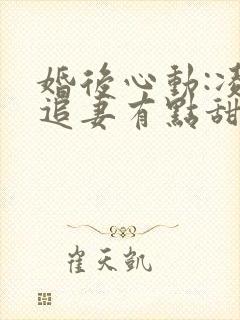 婚後心動:凌
追妻有點甜
崔天凱